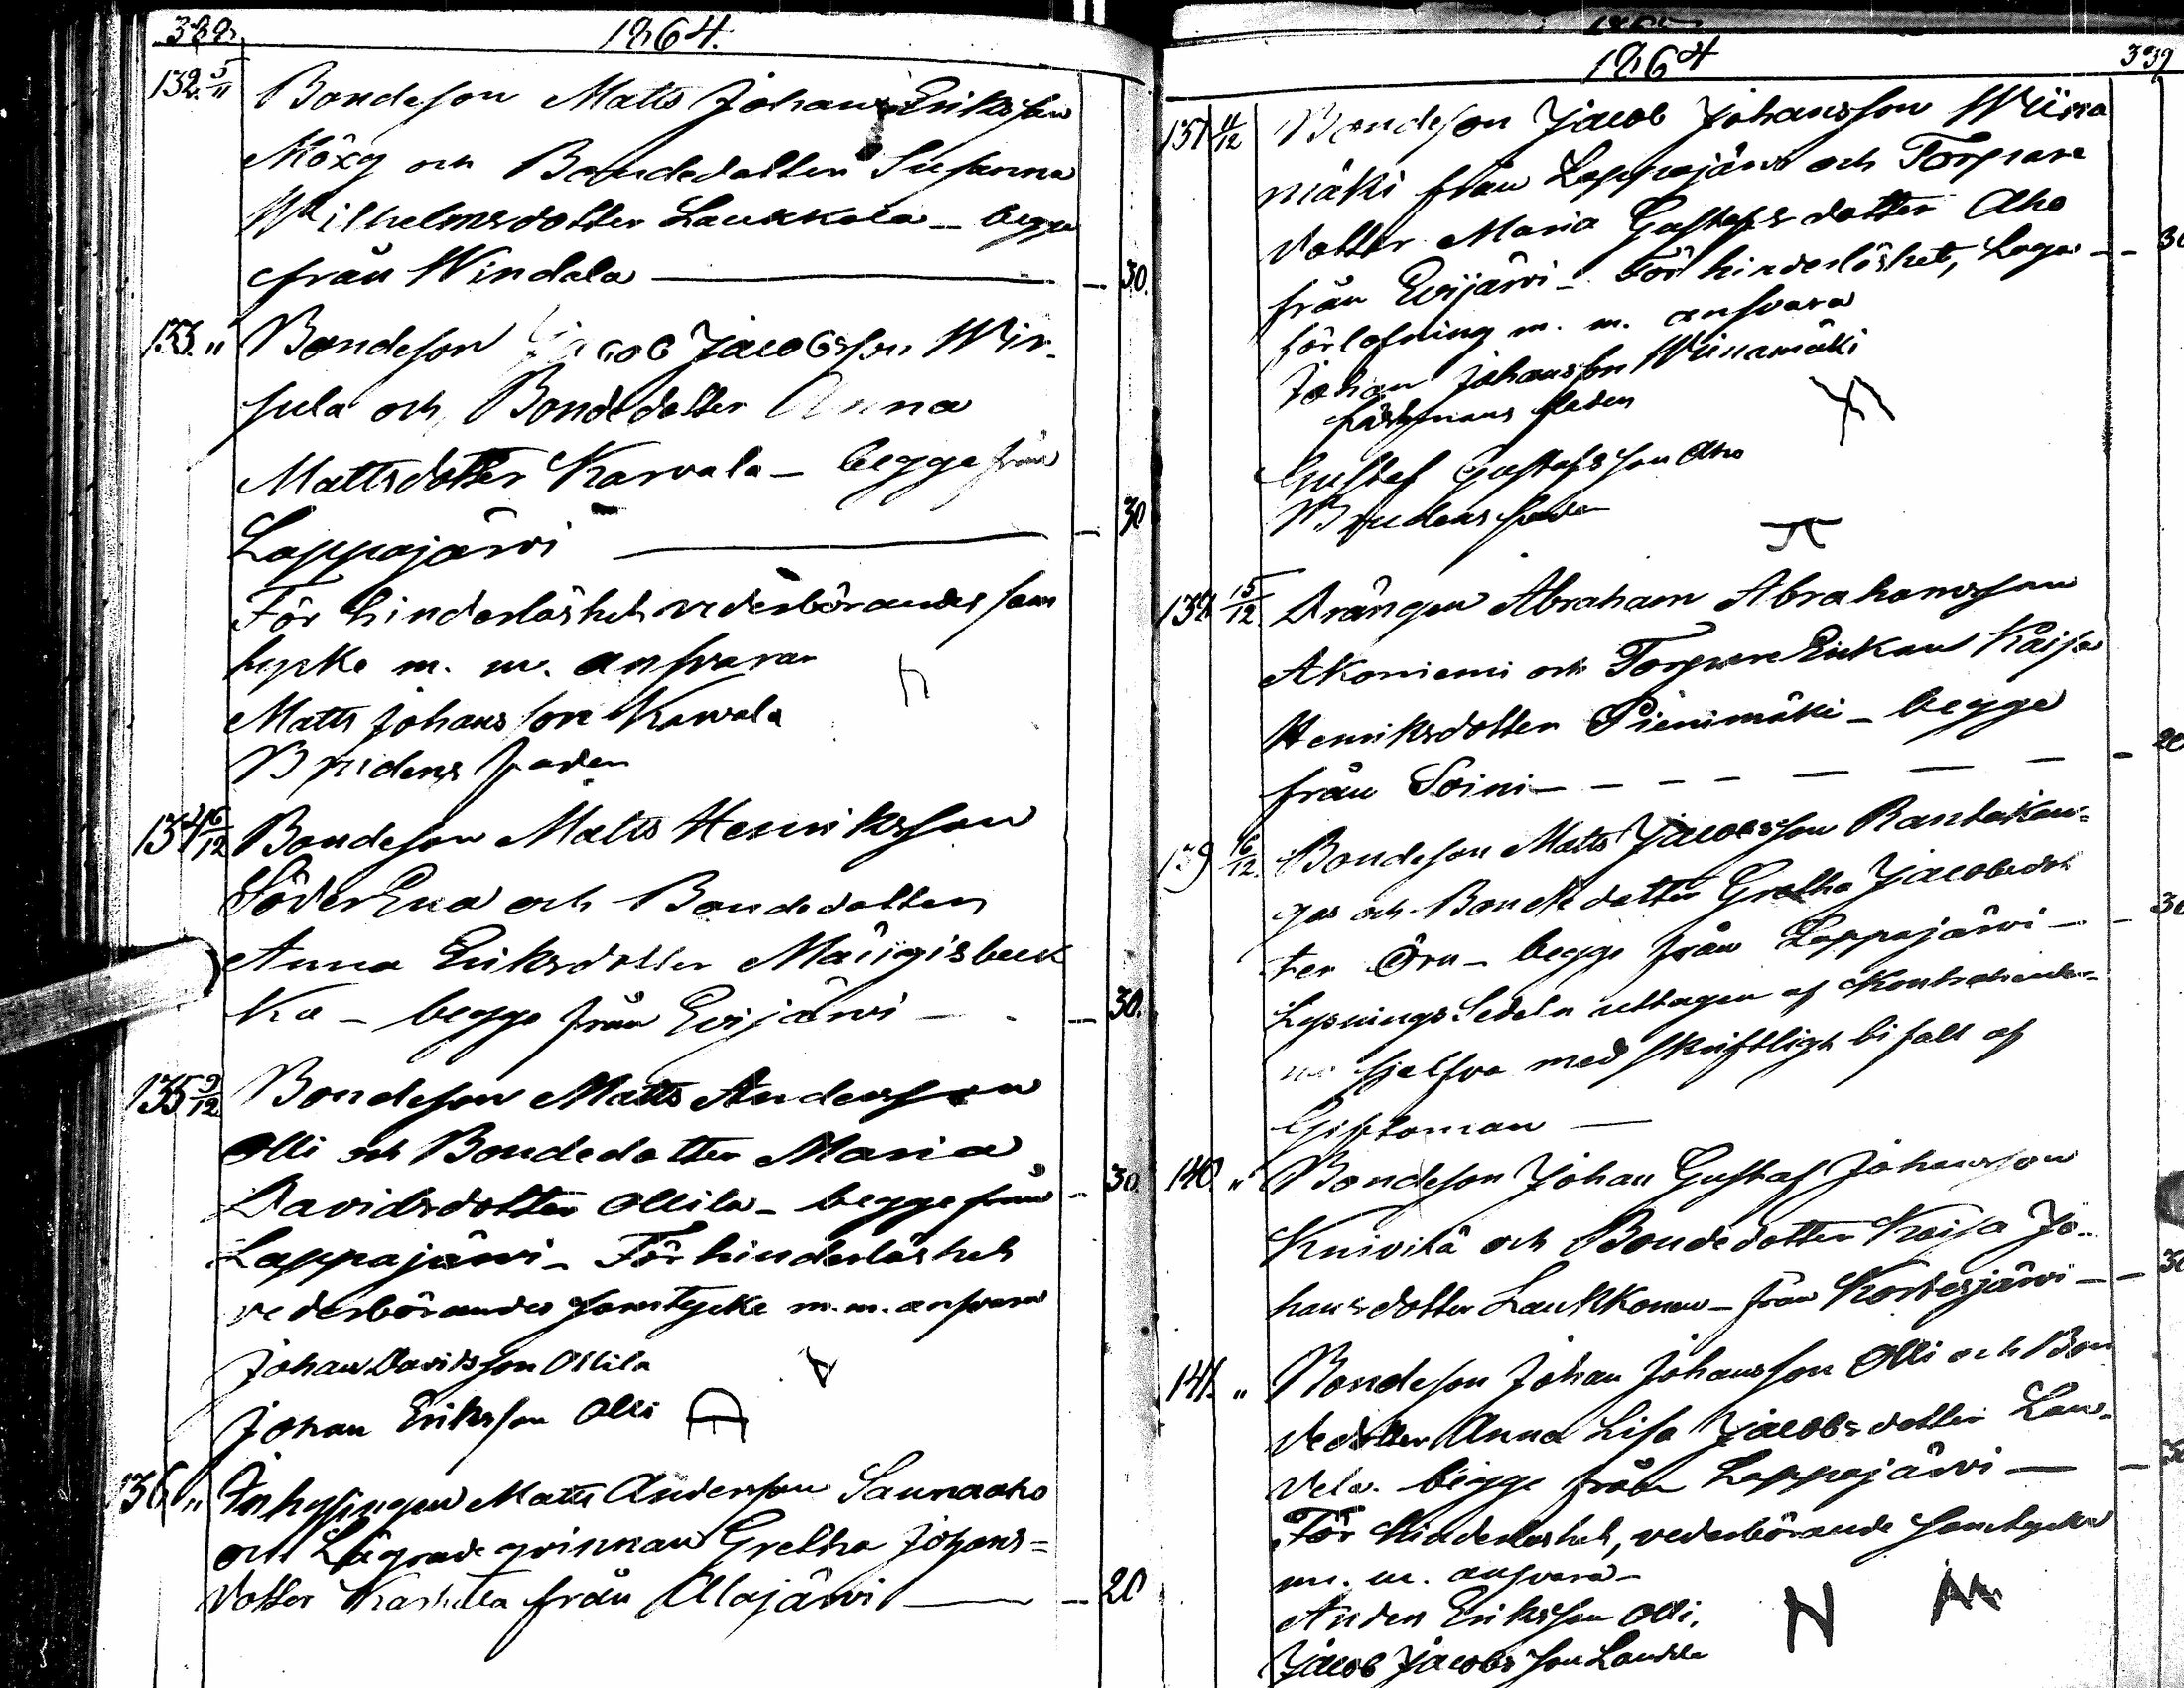 338.
1864.
132. 5/11 Bondeson Matts Johan Eriksson
Möxy och Bondedotter Susanna
Wilhelmsdotter Laukkala - begge
från Windala - 30.
133. " Bondeson Jacob Jacobsson Wir-
sula och Bondedotter Anna
Mattsdotter Karvala - begge från
Lappajärvi - 30
För hinderlöshet vederbörandes sam
tycke m. m. ansvarar
Matts Johansson Karvala
Brudens fader
134 6/12 Bondeson Matts Henriksson
SöderEna och Bondedotter
Anna Eriksdotter Mängisbeck
ka - begge från Evijärvi - - 30.
135 9/12 Bondeson Matts Andersson
Olli och Bondedotter Maria
Davidsdotter Ollila - begge från - 30.
Lappajärvi - För hinderlöshet
vederbörandes samtycke m. m. ansvara
Johan Davidsson Ollila
Johan Eriksson Olli
136 " Inhysingen Matts Andersson Saunaaho
och Lägrade qvinnan Gretha Johans=
dotter från Alajärvi - 20
1864
339
137 11/12 Bondeson Jacob Johansson Wiina
mäki från Lappajärvi och Torpare
dotter Maria Gustafsdotter Aho
från Evijärvi - För hinderlöshet, laga - - 30
förlofning m. m. ansvara
Johan Johansson Wiinamäki
fästmans fader
Gustaf Gustafsson Aho
Brudens fader
138 15/12 Drängen Abraham Abrahamsson
Akoniemi och Torpare Enkan Kaisa
Henriksdotter Pienimäki - begge
från Soini - - - - - - 20
139 16/12. Bondeson Matts Jacobsson Rantakan=
gas och Bondedotter Gretha Jacobsdot
ter Örn - begge från Lappajärvi - - 30
Lysnings Sedeln uttagen af Kontrahenter-
na sjelfva med skriftligt bifall af
Giftoman -
140. " Bondeson Johan Gustaf Johansson
Knivilä och Bondedotter Kaisa Jo-
hansdotter Laukkonen - från Kortesjärvi - - 30
141. " Bondeson Johan Johansson Olli och Bon
dedotter Anna Lisa Jacobsdotter Lan-
dela. begge från Lappajärvi - - 30
För hinderlöshet, vederbörande samtycke
m. m. ansvara -
Anders Eriksson Olli,
Jacob Jacobsson Landela